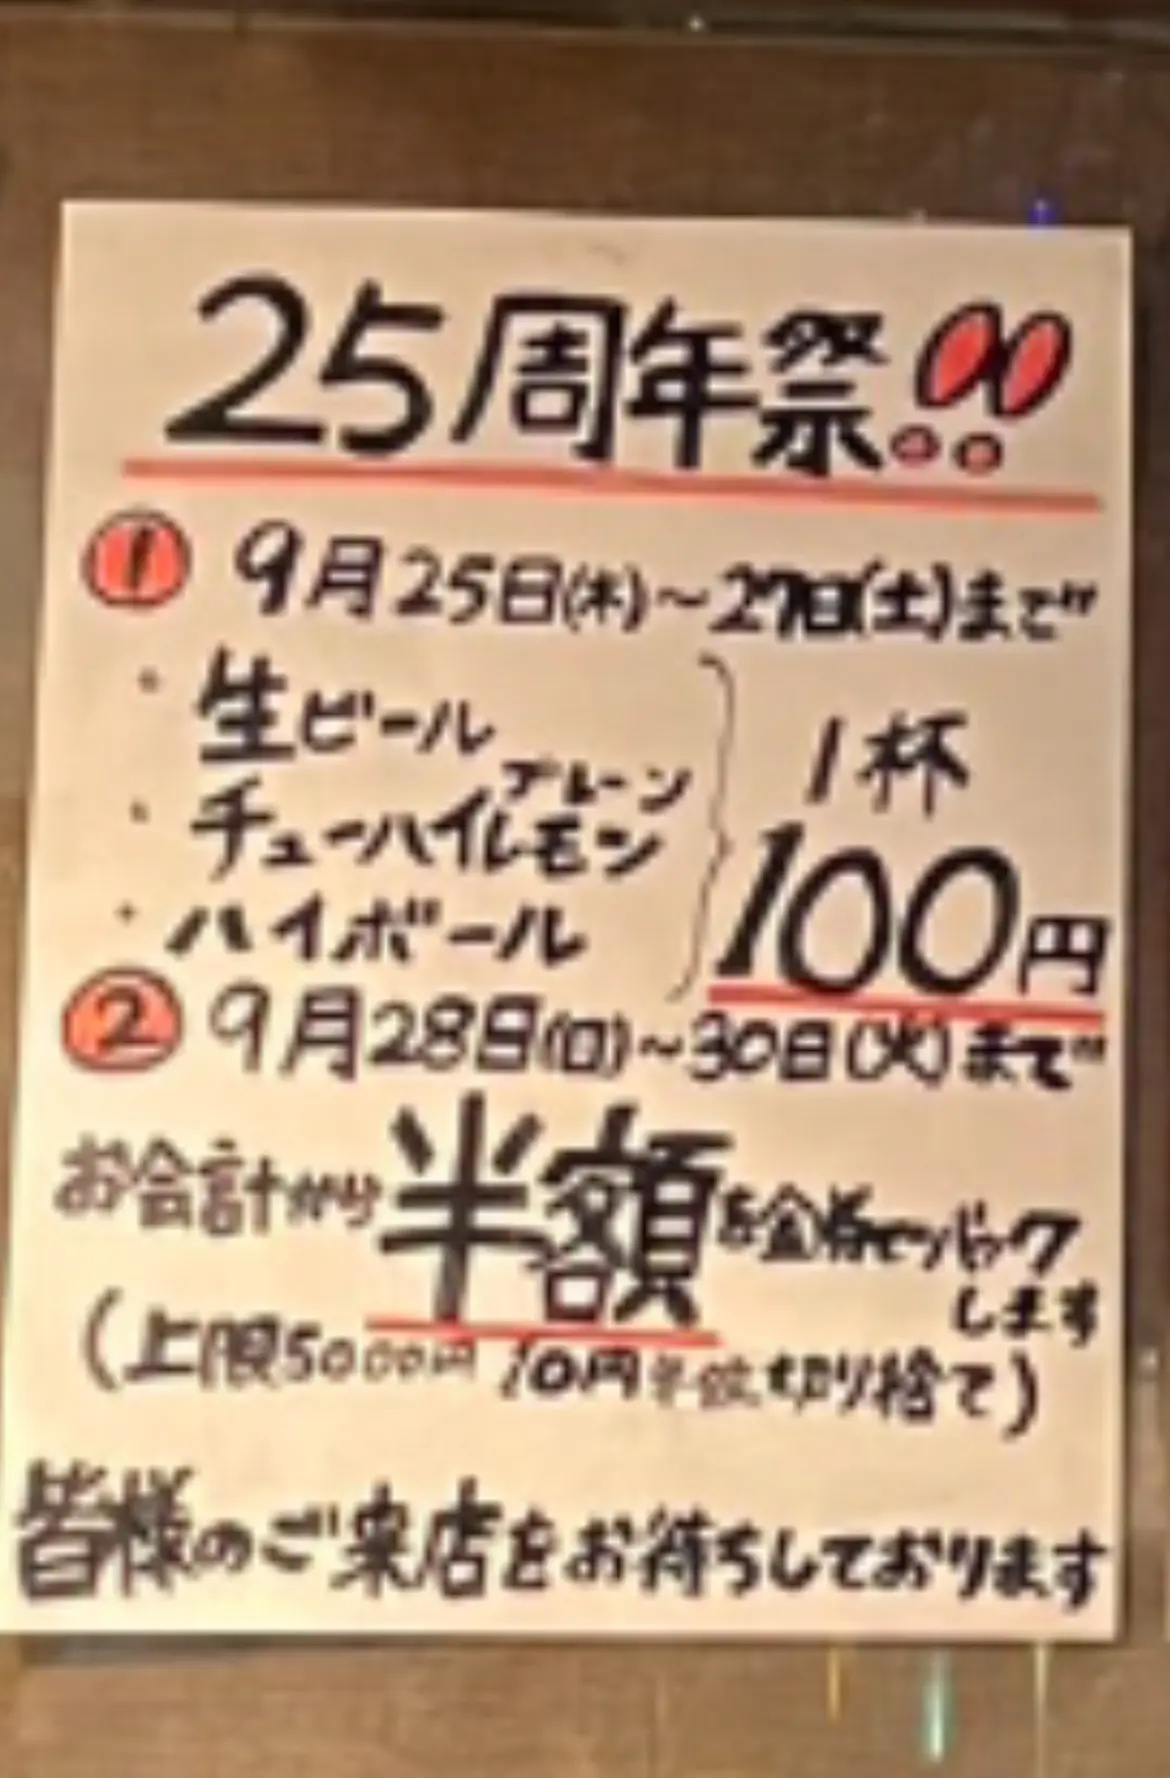 25周年祭!!
① 9月25日(木)~27日(土)まで
・生ビール
・チューハイ プレーン
レモン
・ハイボール
1杯
100円
② 9月28日(日)~30日(火)まで
お会計から半額を金券でバック
します
(上限5000円 10円単位切り捨て)
皆様のご来店をお待ちしております